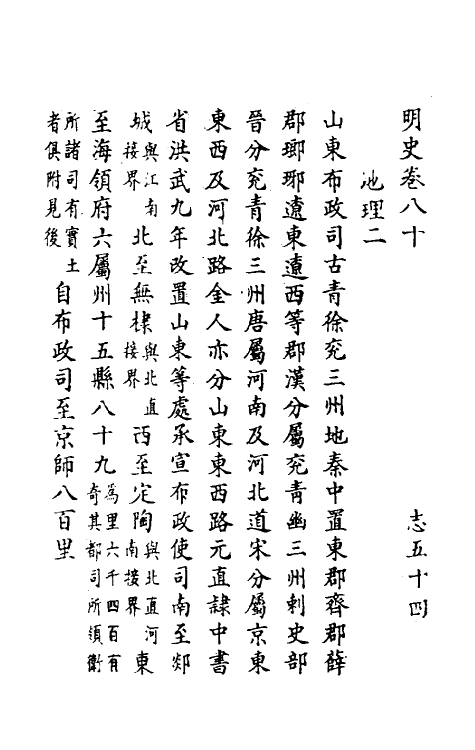 明史卷八十 志五十四
地理二
山東布政司古青徐兖三州地秦中置東郡齊郡薛
郡瑯琊遼東遼西等郡漢分屬兖青幽三州刺史部
晉分兖青徐三州唐屬河南及河北道宋分屬京東
東西及河北路金人亦分山東東西路元直隸中書
省洪武九年改置山東等處承宣布政使司南至郯
城與江南接界北至無棣與北直接界西至定陶與北直河南接界東
至海領府六屬州十五縣八十九為里六千四百有奇其都司所領衛
所諸司有實土者俱附見後自布政司至京師八百里